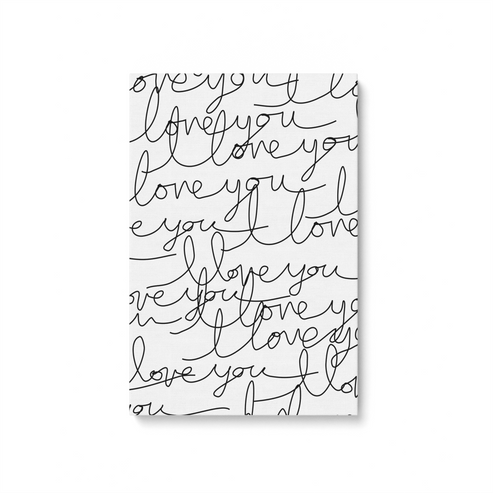 ove you I lo
I love you
I love you
love you I
e you I love
I love you
ove you I love yo
u I love you
I love you I lo
you I